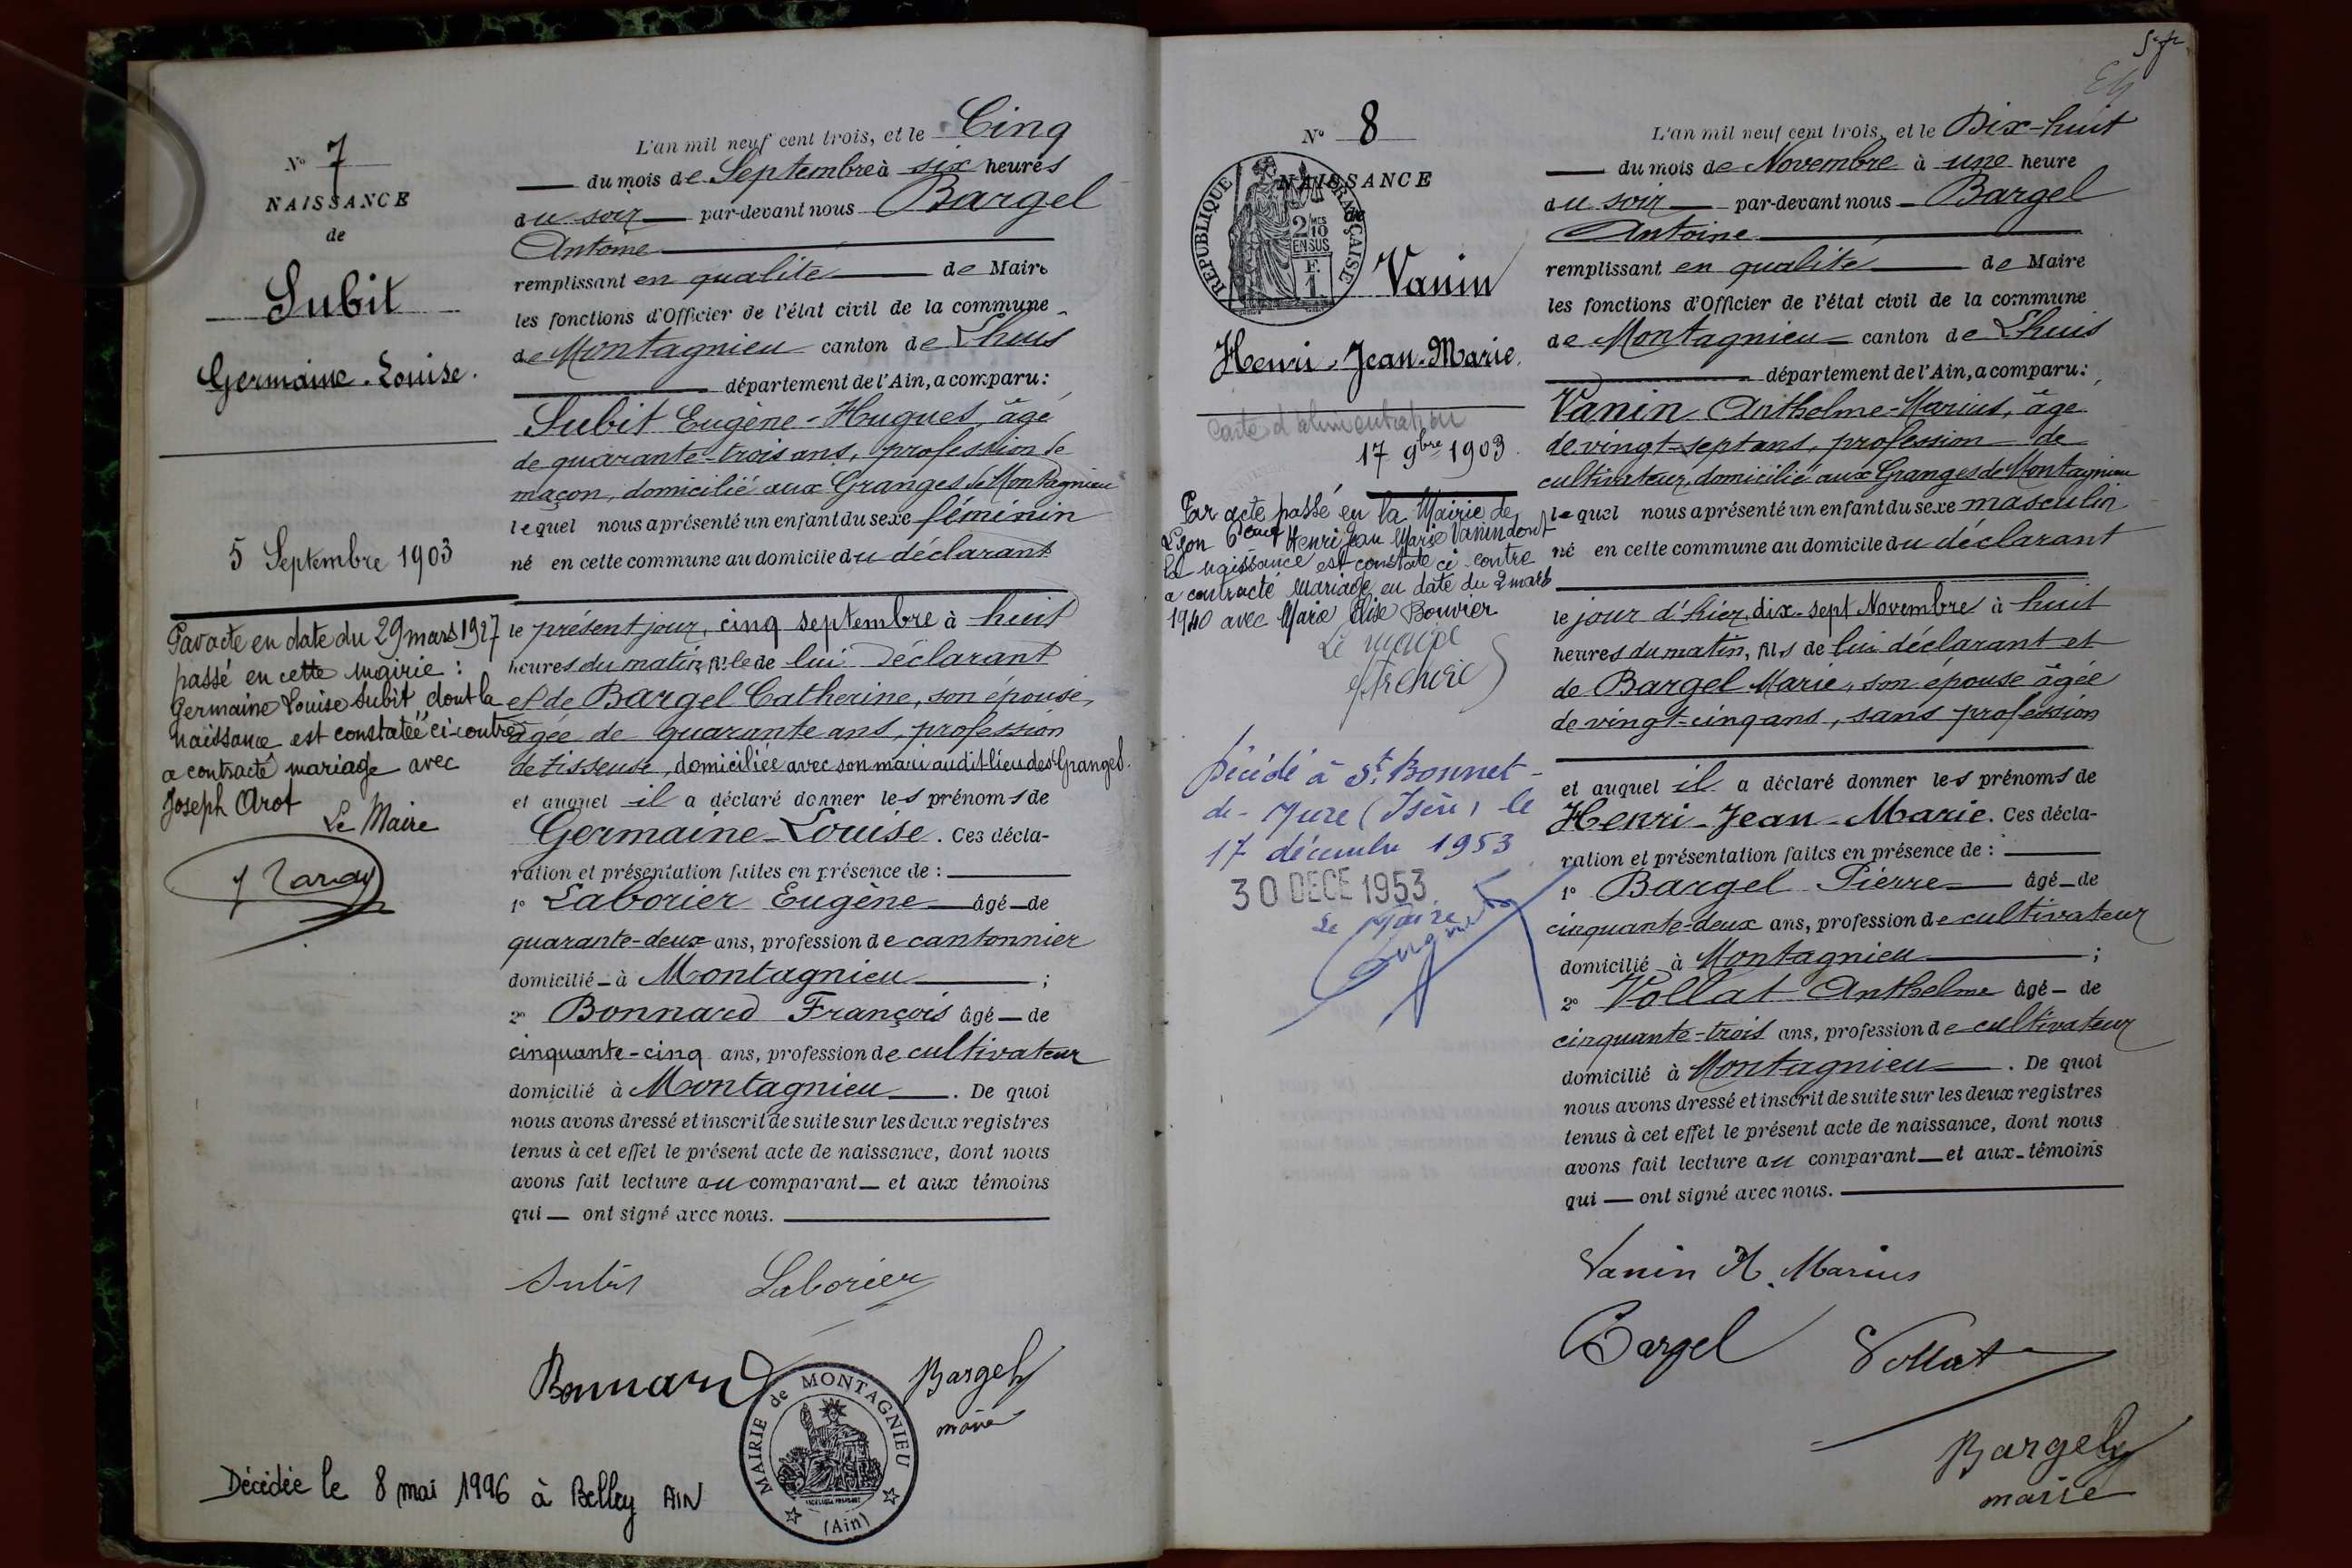 N° 7
NAISSANCE
de
Subit
Germaine-Louise.
5 Septembre 1903
Par acte en date du 29 mars 1927
passé en cette mairie :
Germaine Louise Subit, dont la
naissance est constatée ci-contre
a contracté mariage avec
Joseph Arot
Le Maire
L'an mil neuf cent trois, et le Cinq
du mois de Septembre à six heures
du soir par-devant nous Bargel
Antoine
remplissant en qualité de Maire
les fonctions d'Officier de l'état civil de la commune
de Montagnieu canton de Lhuis
département de l'Ain, a comparu :
Subit Eugène-Hugues, âgé
de quarante-trois ans, profession de
maçon, domicilié aux Granges de Montagnieu
lequel nous a présenté un enfant du sexe féminin
né en cette commune au domicile du déclarant
le présent jour, cinq septembre à huit
heures du matin, fille de lui déclarant
et de Bargel Catherine, son épouse,
âgée de quarante ans, profession
de tisseuse, domiciliée avec son mari audit lieu des Granges.
et auquel il a déclaré donner les prénoms de
Germaine-Louise. Ces décla-
ration et présentation faites en présence de :
1° Laborier Eugène âgé de
quarante-deux ans, profession de cantonnier
domicilié à Montagnieu ;
2° Bonnard François âgé de
cinquante-cinq ans, profession de cultivateur
domicilié à Montagnieu. De quoi
nous avons dressé et inscrit de suite sur les deux registres
tenus à cet effet le présent acte de naissance, dont nous
avons fait lecture au comparant et aux témoins
qui ont signé avec nous.
Subit Laborier
Bonnard Bargel
maire
MAIRIE de MONTAGNIEU
(Ain)
Décédée le 8 mai 1996 à Belley AIN
N° 8
NAISSANCE
de
RÉPUBLIQUE FRANÇAISE
2/10 MES
EN SUS
F.
1
Vanin
Henri-Jean-Marie.
Carte d'alimentation
17 9bre 1903.
Par acte passé en la Mairie de
Lyon 6e arrt Henri Jean Marie Vanin dont
la naissance est constatée ci-contre
a contracté mariage en date du 2 mars
1940 avec Marie Elise Bouvier
Le maire
Décédé à St Bonnet-
de-Mure (Isère) le
17 décembre 1953
30 DECE 1953
Le Maire
L'an mil neuf cent trois, et le Dix-huit
du mois de Novembre à une heure
du soir par-devant nous Bargel
Antoine
remplissant en qualité de Maire
les fonctions d'Officier de l'état civil de la commune
de Montagnieu canton de Lhuis
département de l'Ain, a comparu :
Vanin Anthelme-Marius, âgé
de vingt-sept ans, profession de
cultivateur, domicilié aux Granges de Montagnieu
lequel nous a présenté un enfant du sexe masculin
né en cette commune au domicile du déclarant
le jour d'hier, dix-sept Novembre à huit
heures du matin, fils de lui déclarant et
de Bargel Marie, son épouse âgée
de vingt-cinq ans, sans profession
et auquel il a déclaré donner les prénoms de
Henri-Jean-Marie. Ces décla-
ration et présentation faites en présence de :
1° Bargel Pierre âgé de
cinquante-deux ans, profession de cultivateur
domicilié à Montagnieu ;
2° Vollat Anthelme âgé de
cinquante-trois ans, profession de cultivateur
domicilié à Montagnieu. De quoi
nous avons dressé et inscrit de suite sur les deux registres
tenus à cet effet le présent acte de naissance, dont nous
avons fait lecture au comparant et aux témoins
qui ont signé avec nous.
Vanin A. Marius
Bargel Vollat
Bargel
maire